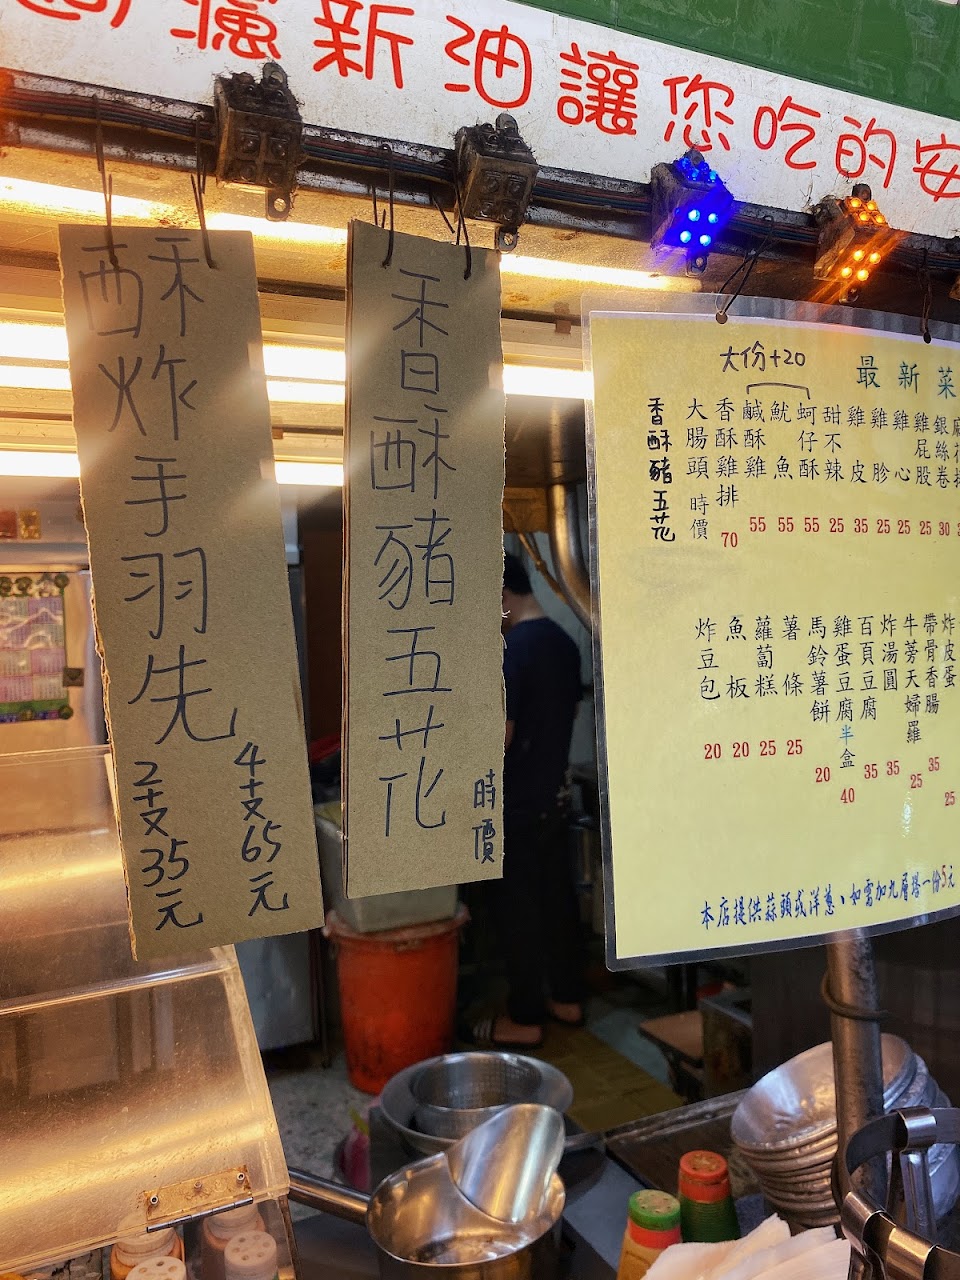 濾新油讓您吃的安
酥炸手羽先
2支35元
4支65元
香酥豬五花
時價
最新菜
大份+20
香酥豬五花
大腸頭 時價
香酥雞排 70
鹹酥雞 55
魷魚 55
蚵仔酥 55
甜不辣 25
雞皮 35
雞胗 25
雞心 25
雞屁股 25
銀絲卷 30
炸豆包 20
魚板 20
蘿蔔糕 25
薯條 25
馬鈴薯餅 20
雞蛋豆腐半盒 40
百頁豆腐 35
炸湯圓 35
牛蒡天婦羅 25
帶骨香腸 35
炸皮蛋 25
本店提供蒜頭或洋蔥、如需加九層塔一份5元